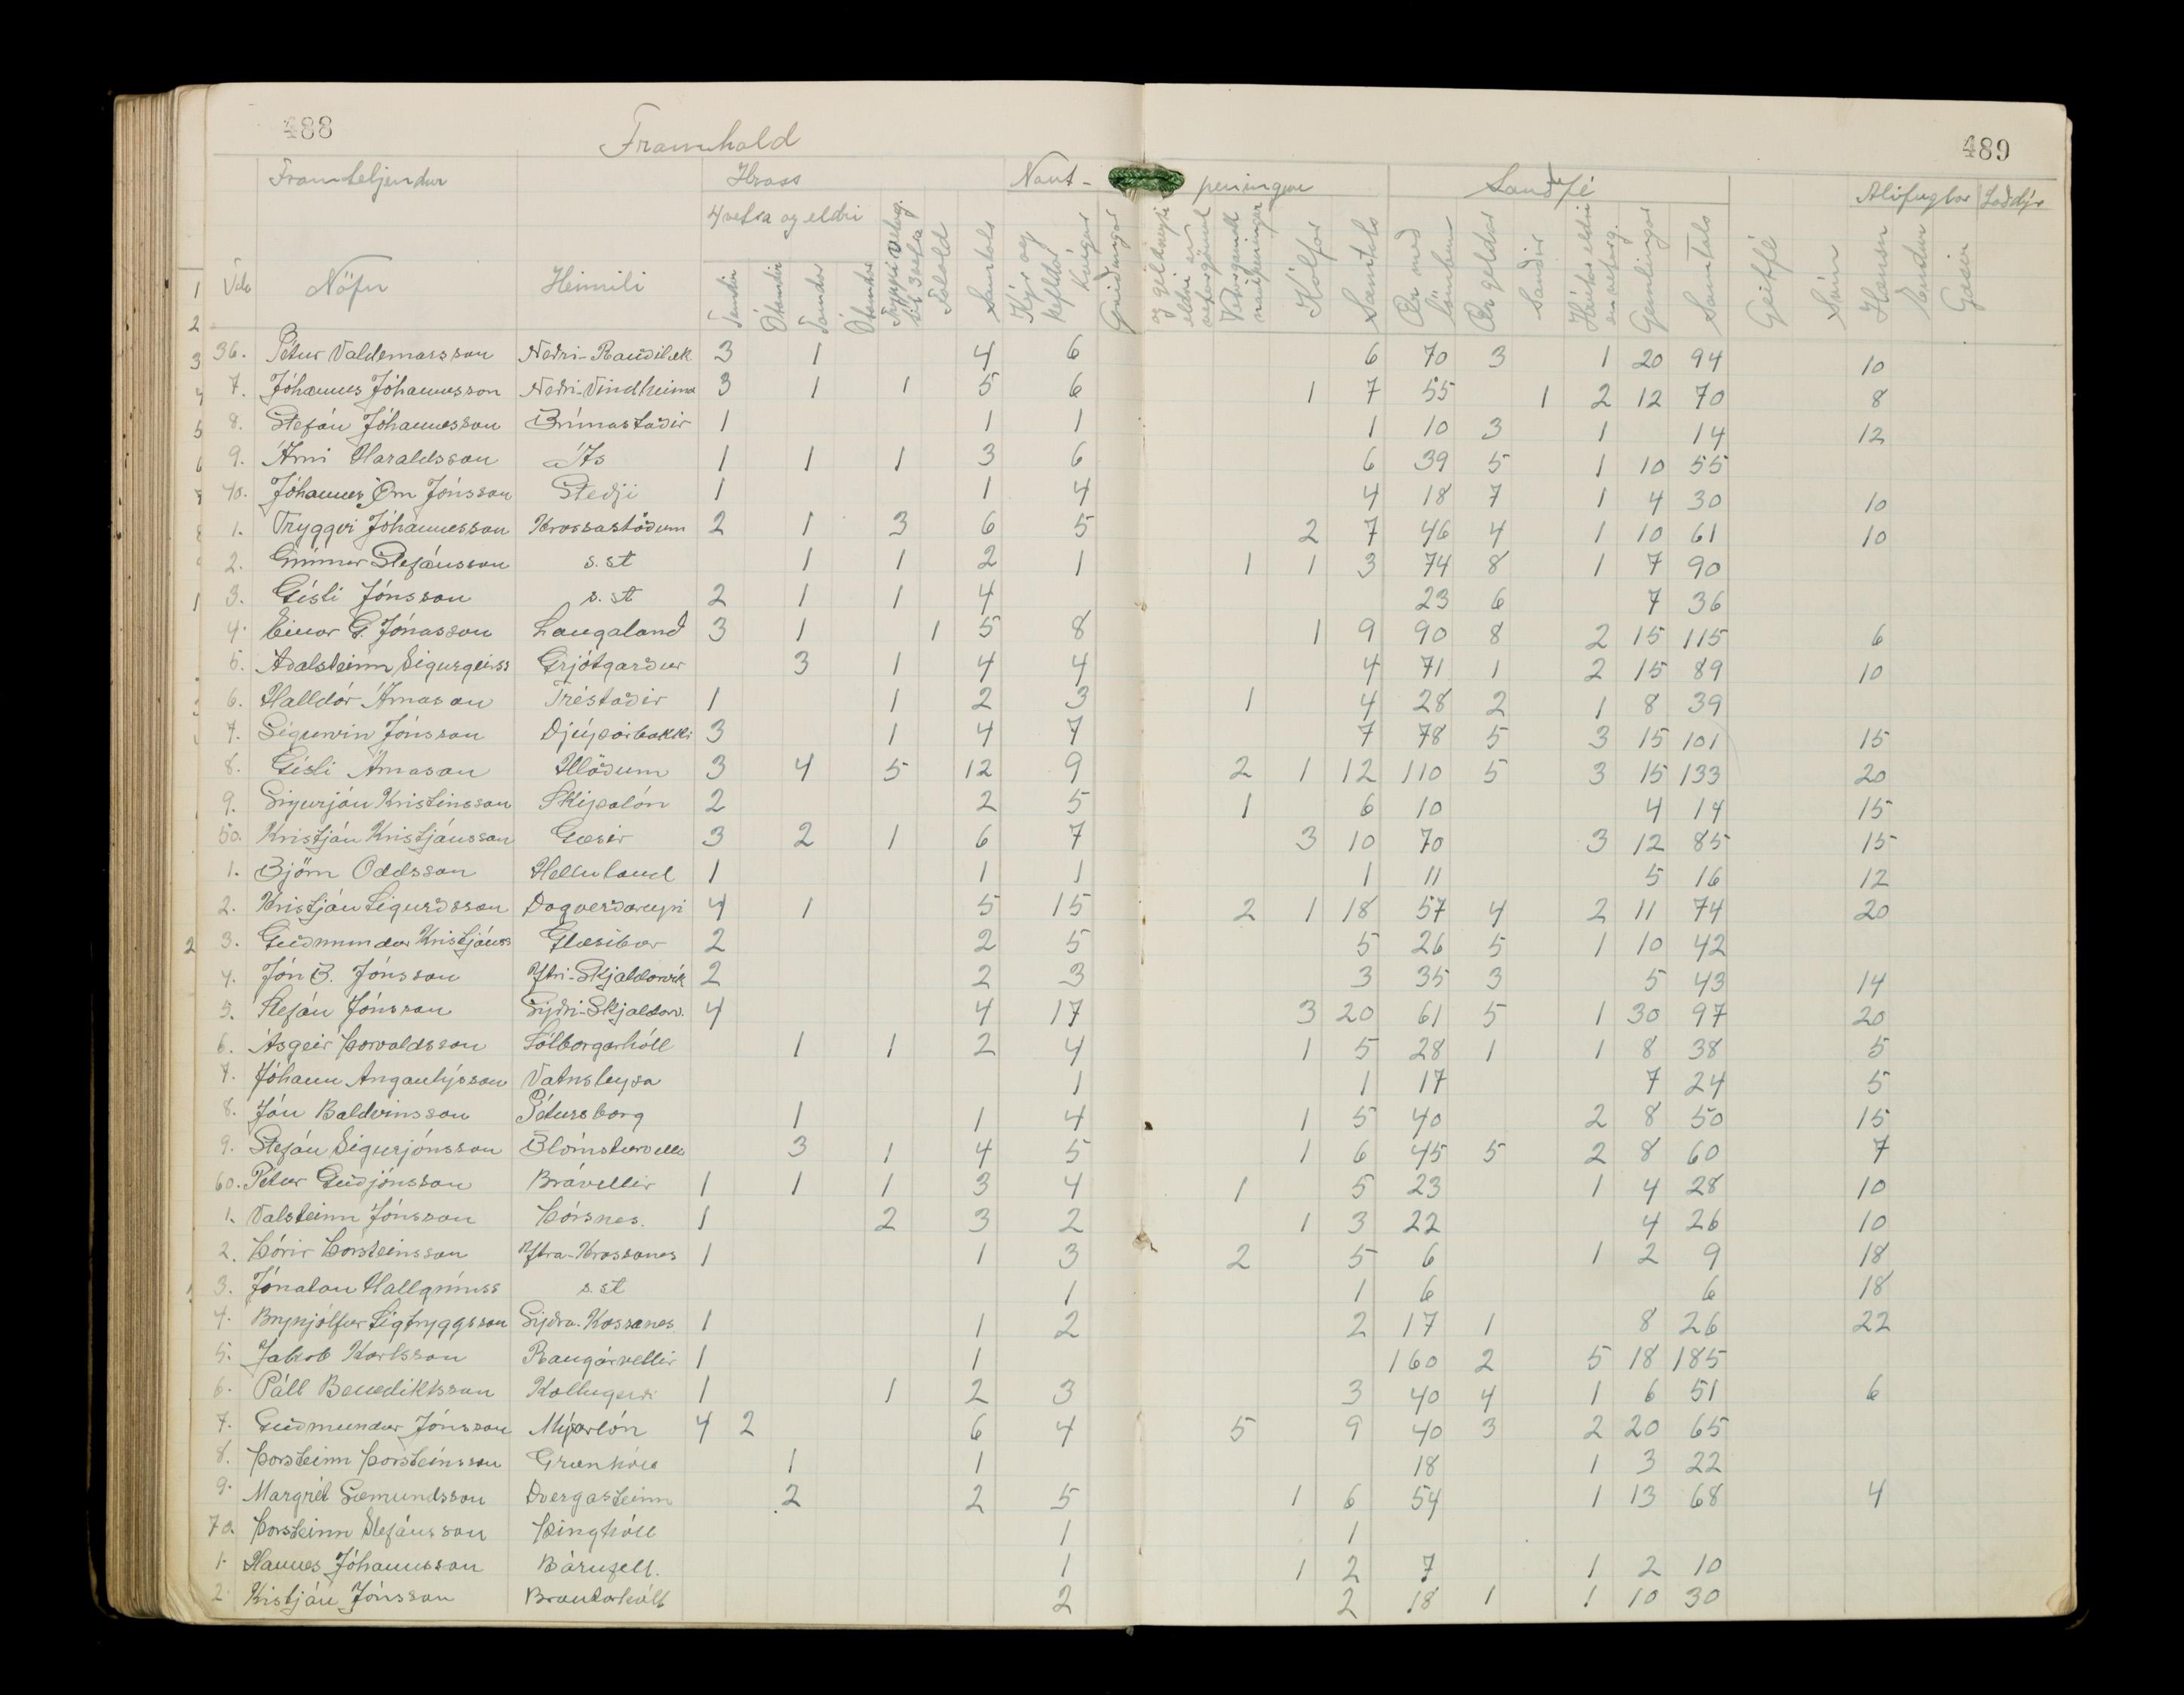 488
489
Framhald
Framteljendur Hross Naut- peningur Sauðfé Alifuglar Loðdýr
4 vetra og eldri
Tala Nöfn Heimili Tamdir Ótamdir Tamdar Ótamdar Tryppi veturg. til 3 vetra Folöld Samtals Kýr og kefldar kvígur Griðungar og geldneyti eldri en veturgömul Veturgamall nautpeningur Kálfar Samtals Ær með lömbum Ær geldar Sauðir Hrútar eldri en veturg. Gemlingar Samtals Geitfé Svín Hænsn Endur Gæsir
36. Pétur Valdemarsson Neðri-Rauðilæk 3 1 4 6 6 70 3 1 20 94 10
7. Jóhannes Jóhannesson Neðri-Vindheima 3 1 1 5 6 1 7 55 1 2 12 70 8
8. Stefán Jóhannesson Brímastaðir 1 1 1 1 10 3 1 14 12
9. Árni Haraldsson Ás 1 1 1 3 6 6 39 5 1 10 55
40. Jóhannes Örn Jónsson Steðji 1 1 4 4 18 7 1 4 30 10
1. Tryggvi Jóhannesson Krossastöðum 2 1 3 6 5 2 7 46 4 1 10 61 10
2. Stefánsson s. st 1 1 2 1 1 1 3 74 8 1 7 90
3. Gísli Jónsson s. st 2 1 1 4 23 6 7 36
4. Einar G. Jónasson Laugaland 3 1 1 5 8 1 9 90 8 2 15 115 6
5. Aðalsteinn Sigurgeirss Grjótgarður 3 1 4 4 4 71 1 2 15 89 10
6. Halldór Árnason Tréstaðir 1 1 2 3 1 4 28 2 1 8 39
7. Sigurvin Jónsson Djúpárbakki 3 1 4 7 7 78 5 3 15 101 15
8. Gísli Árnason Hlöðum 3 4 5 12 9 2 1 12 110 5 3 15 133 20
9. Sigurjón Kristinsson Skipalón 2 2 5 1 6 10 4 14 15
50. Kristján Kristjánsson Gæsir 3 2 1 6 7 3 10 70 3 12 85 15
1. Björn Oddsson Helluland 1 1 1 1 11 5 16 12
2. Kristján Sigurðsson Dagverðareyri 4 1 5 15 2 1 18 57 4 2 11 74 20
3. Guðmundur Kristjánss Glæsibær 2 2 5 5 26 5 1 10 42
4. Jón B. Jónsson Ytri-Skjaldarvík 2 2 3 3 35 3 5 43 14
5. Stefán Jónsson Syðri-Skjaldarv. 4 4 17 3 20 61 5 1 30 97 20
6. Ásgeir Þorvaldsson Sólborgarhóll 1 1 2 4 1 5 28 1 1 8 38 5
7. Jóhann Angantýsson Vatnsleysa 1 1 17 7 24 5
8. Jón Baldvinsson Pétursborg 1 1 4 1 5 40 2 8 50 15
9. Stefán Sigurjónsson Blómsturvellir 3 1 4 5 1 6 45 5 2 8 60 7
60. Pétur Guðjónsson Brávellir 1 1 1 3 4 1 5 23 1 4 28 10
1. Valsteinn Jónsson Þórsnes. 1 2 3 2 1 3 22 4 26 10
2. Þórir Þorsteinsson Ytra-Krossanes 1 1 3 2 5 6 1 2 9 18
3. Jónatan Hallgrímss s. st 1 1 6 6 18
4. Brynjólfur Sigtryggsson Syðra-Kossanes 1 1 2 2 17 1 8 26 22
5. Jakob Karlsson Rangárvellir 1 1 160 2 5 18 185
6. Páll Benediktsson Kollugerði 1 1 2 3 3 40 4 1 6 51 6
7. Guðmundur Jónsson Mýrarlón 4 2 6 4 5 9 40 3 2 20 65
8. Þorsteinn Þorsteinsson Grænhóll 1 1 18 1 3 22
9. Margrét Sæmundsson Dvergasteinn 2 2 5 1 6 54 1 13 68 4
70. Þorsteinn Stefánsson Þinghóll 1 1
1. Hannes Jóhannsson Bárufell. 1 1 2 7 1 2 10
2. Kistján Jónsson Brautarhóll 2 2 18 1 1 10 30